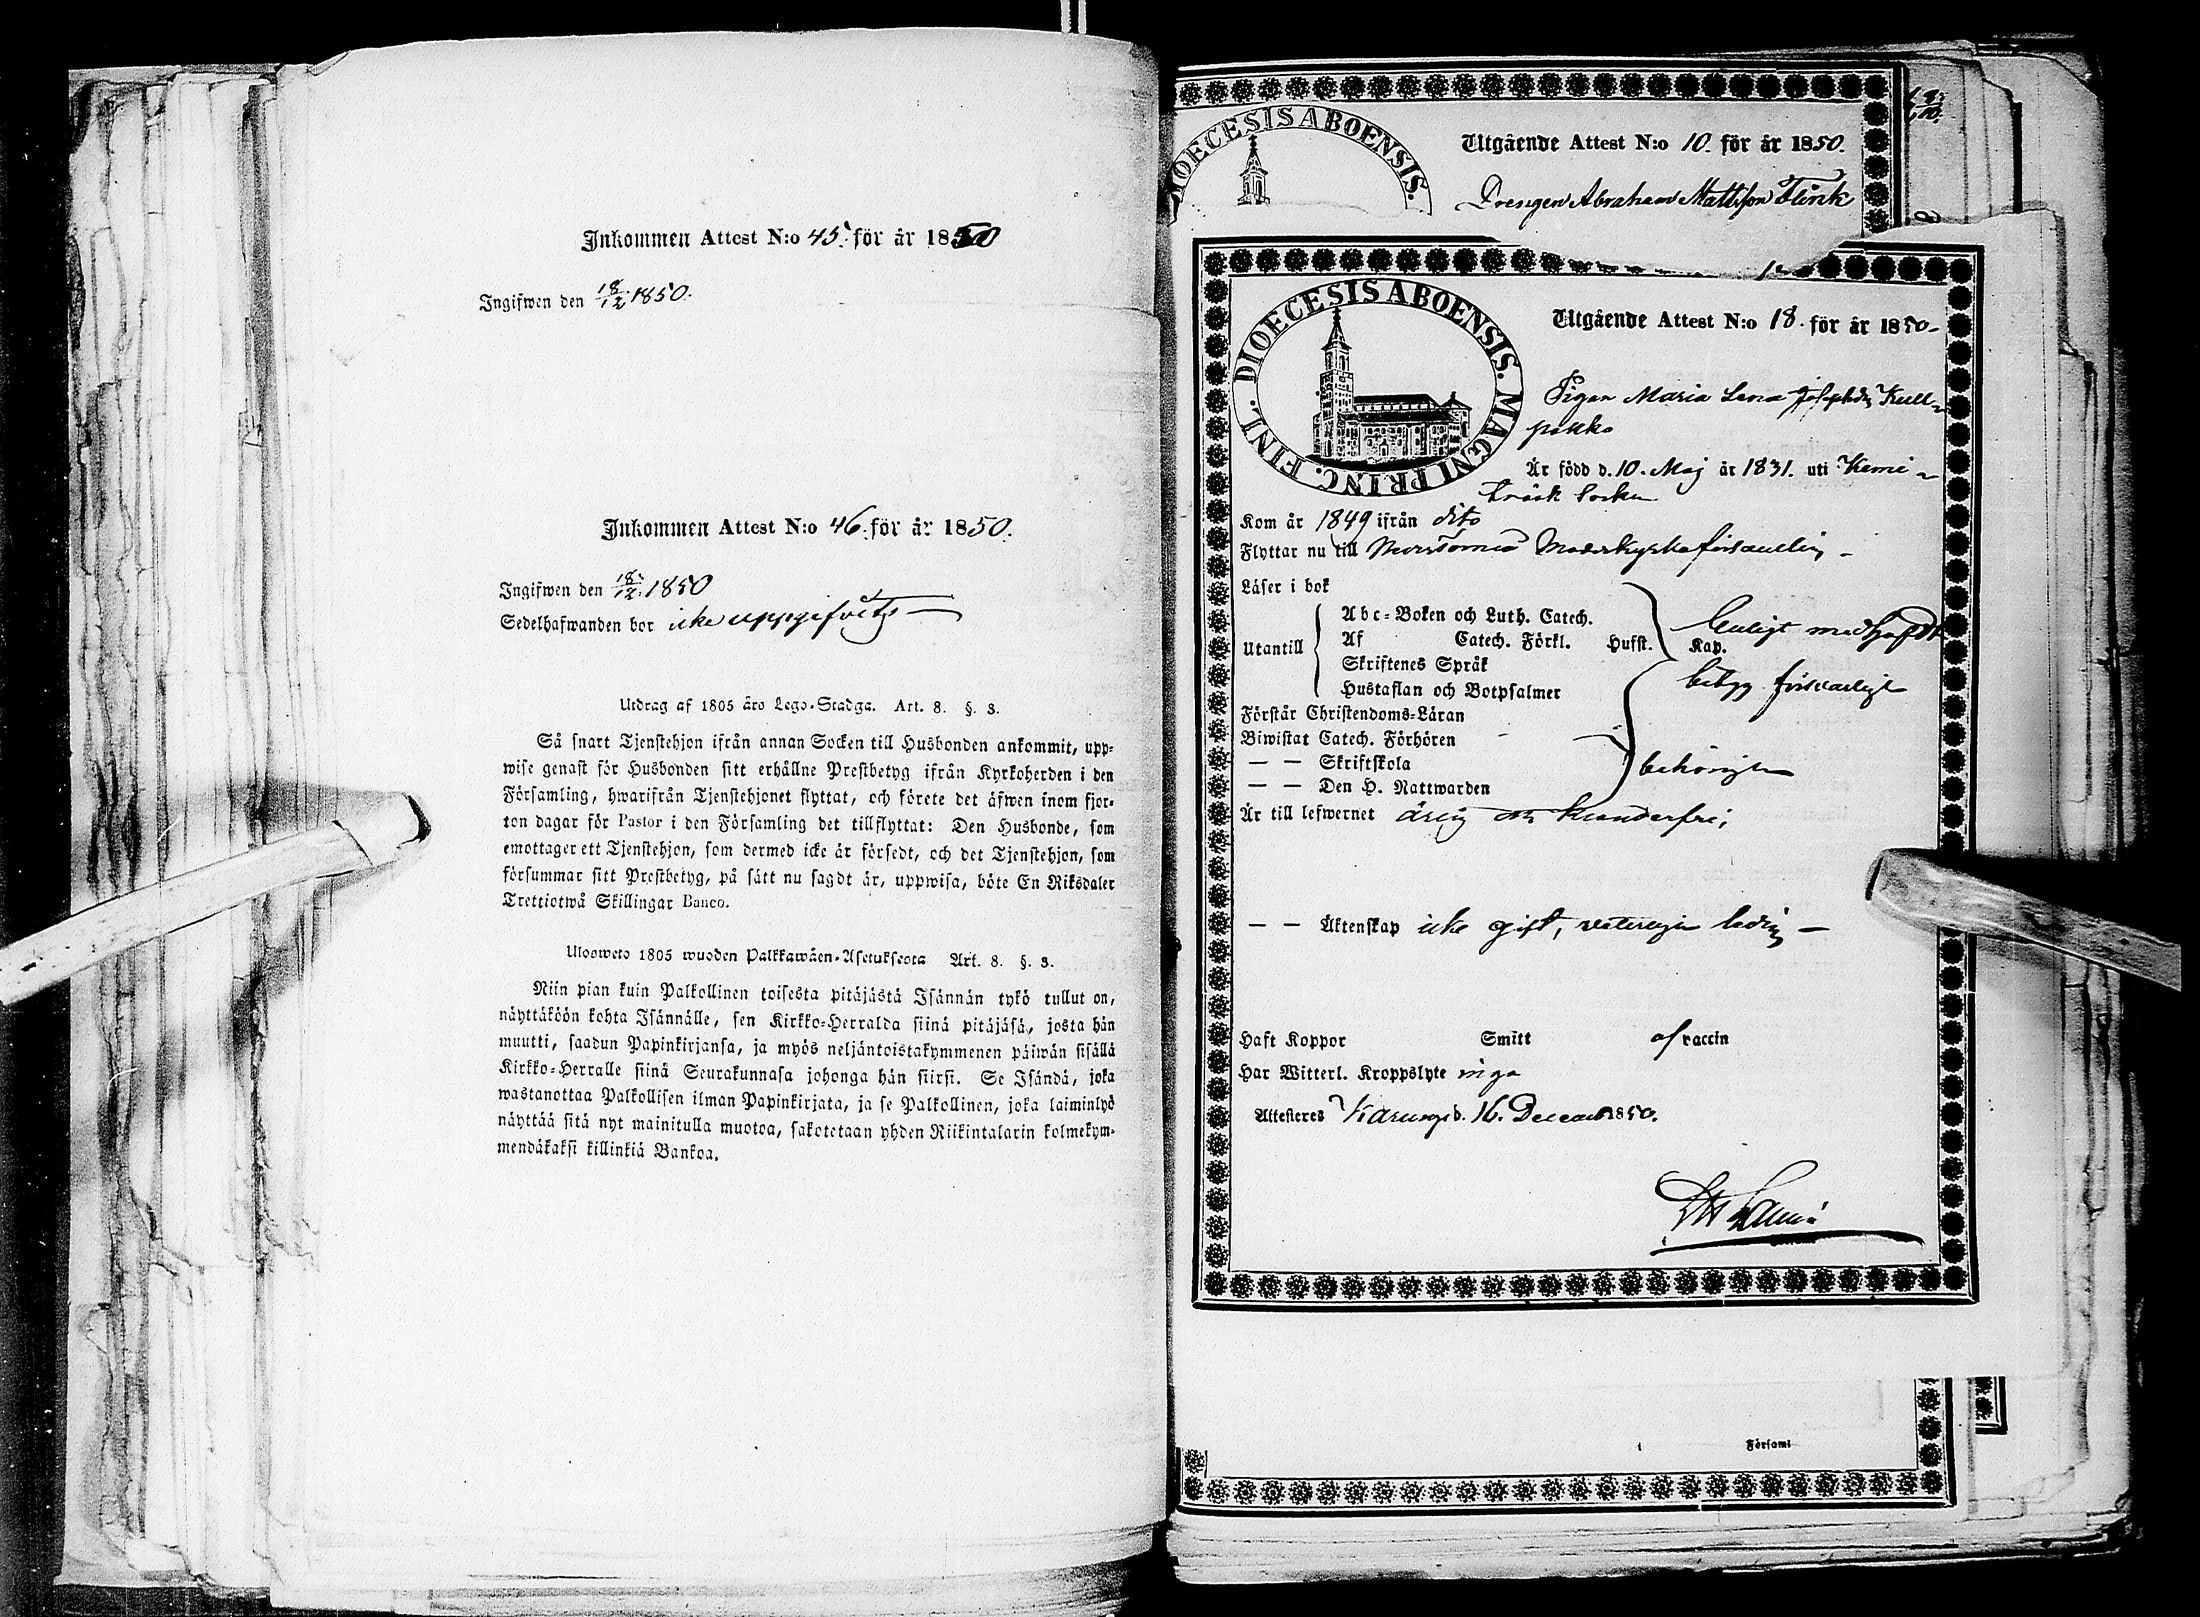 Inkommen Attest N:o 45. för år 1850
Ingifwen den 18/12 1850.
Inkommen Attest N:o 46. för år 1850.
Ingifwen den 18/12 1850
Sedelhafwanden bor icke uppgifvits —
Utdrag af 1805 års Lego-Stadga. Art. 8. §. 3.
Så snart Tjenstehjon ifrån annan Socken till Husbonden ankommit, upp-
wise genast för Husbonden sitt erhållne Prestbetyg ifrån Kyrkoherden i den
Församling, hwarifrån Tjenstehjonet flyttat, och förete det äfwen inom fjor-
ton dagar för Pastor i den Församling det tillflyttat: Den Husbonde, som
emottager ett Tjenstehjon, som dermed icke är försedt, och det Tjenstehjon, som
försummar sitt Prestbetyg, på sätt nu sagdt är, uppwisa, böte En Riksdaler
Trettiotwå Skillingar Banco.
Ulosweto 1805 wuoden Palkkawäen-Asetuksesta Art. 8. §. 3.
Niin pian kuin Palkollinen toisesta pitäjästä Isännän tykö tullut on,
näyttäköön kohta Isännälle, sen Kirkko-Herralda siinä pitäjäsä, josta hän
muutti, saadun Papinkirjansa, ja myös neljäntoistakymmenen päiwän sisällä
Kirkko-Herralle siinä Seurakunnasa johonga hän siirsi. Se Isändä, joka
wastanottaa Palkollisen ilman Papinkirjata, ja se Palkollinen, joka laiminlyö
näyttää sitä nyt mainitulla muotoa, sakotetaan yhden Riikintalarin kolmekym-
mendäkaksi killinkiä Bankoa.
DIOECESIS ABOENSIS.
Utgående Attest N:o 10. för år 1850.
Drengen Abraham Mattsson Flink
DIOECESIS ABOENSIS. MAGNI PRINC. FINL.
Utgående Attest N:o 18. för år 1850-
Pigan Maria Lena Josephsdr Kull-
pakko
Är född d. 10. Maj år 1831. uti Kemi-
träsk Socken
Kom år 1849 ifrån dito
Flyttar nu till Moderkyrkoförsamling -
Läser i bok
Utantill
Abc-Boken och Luth. Catech.
Af Catech. Förkl. Hufst. Kap.
Skriftenes Språk
Hustaflan och Botpsalmer
Enligt medhafdt
betyg försvarligt
Förstår Christendoms-Läran
Biwistat Catech. Förhören
— — Skriftskola
— — Den H. Nattwarden
behörigen
Är till lefwernet ärlig och klanderfri;
— — Äktenskap icke gift, veterligen ledig —
Haft Koppor Smitt af vaccin
Har Witterl. Kroppslyte inga
Attesteres Karungi d. 16. December 1850.
Församl